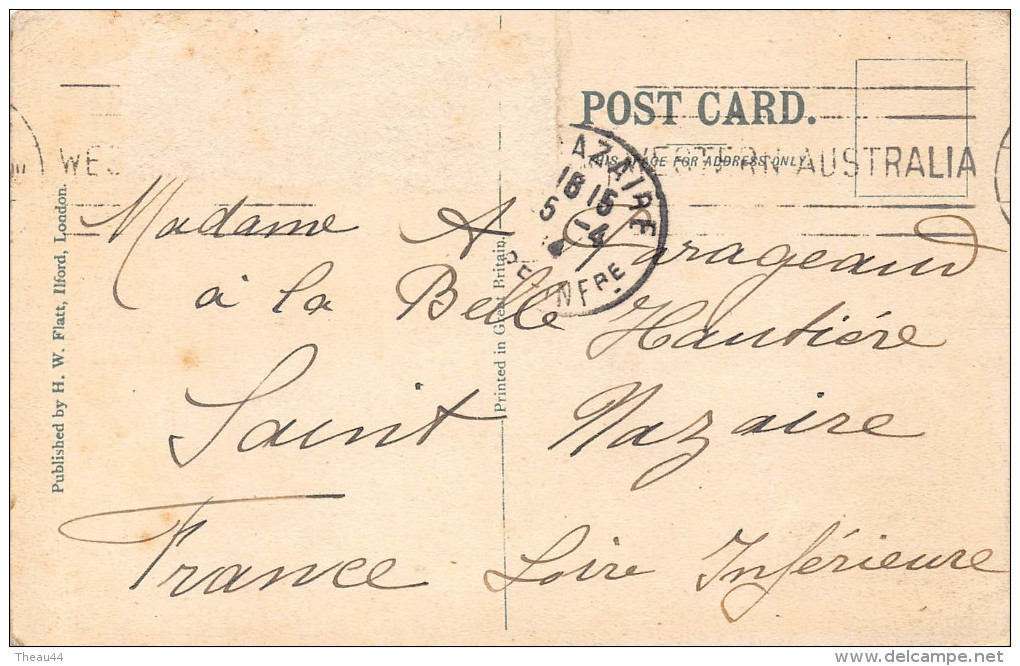 POST CARD.
THIS SPACE FOR ADDRESS ONLY.
WES
WESTERN AUSTRALIA
AZAIRE
18 15
5 -4
INFRE
Madame A Garageaud
à la Belle Hautière
Saint Nazaire
France Loire Inférieure
Published by H. W. Flatt, Ilford, London.
Printed in Great Britain.
Theau44
www.delcampe.net